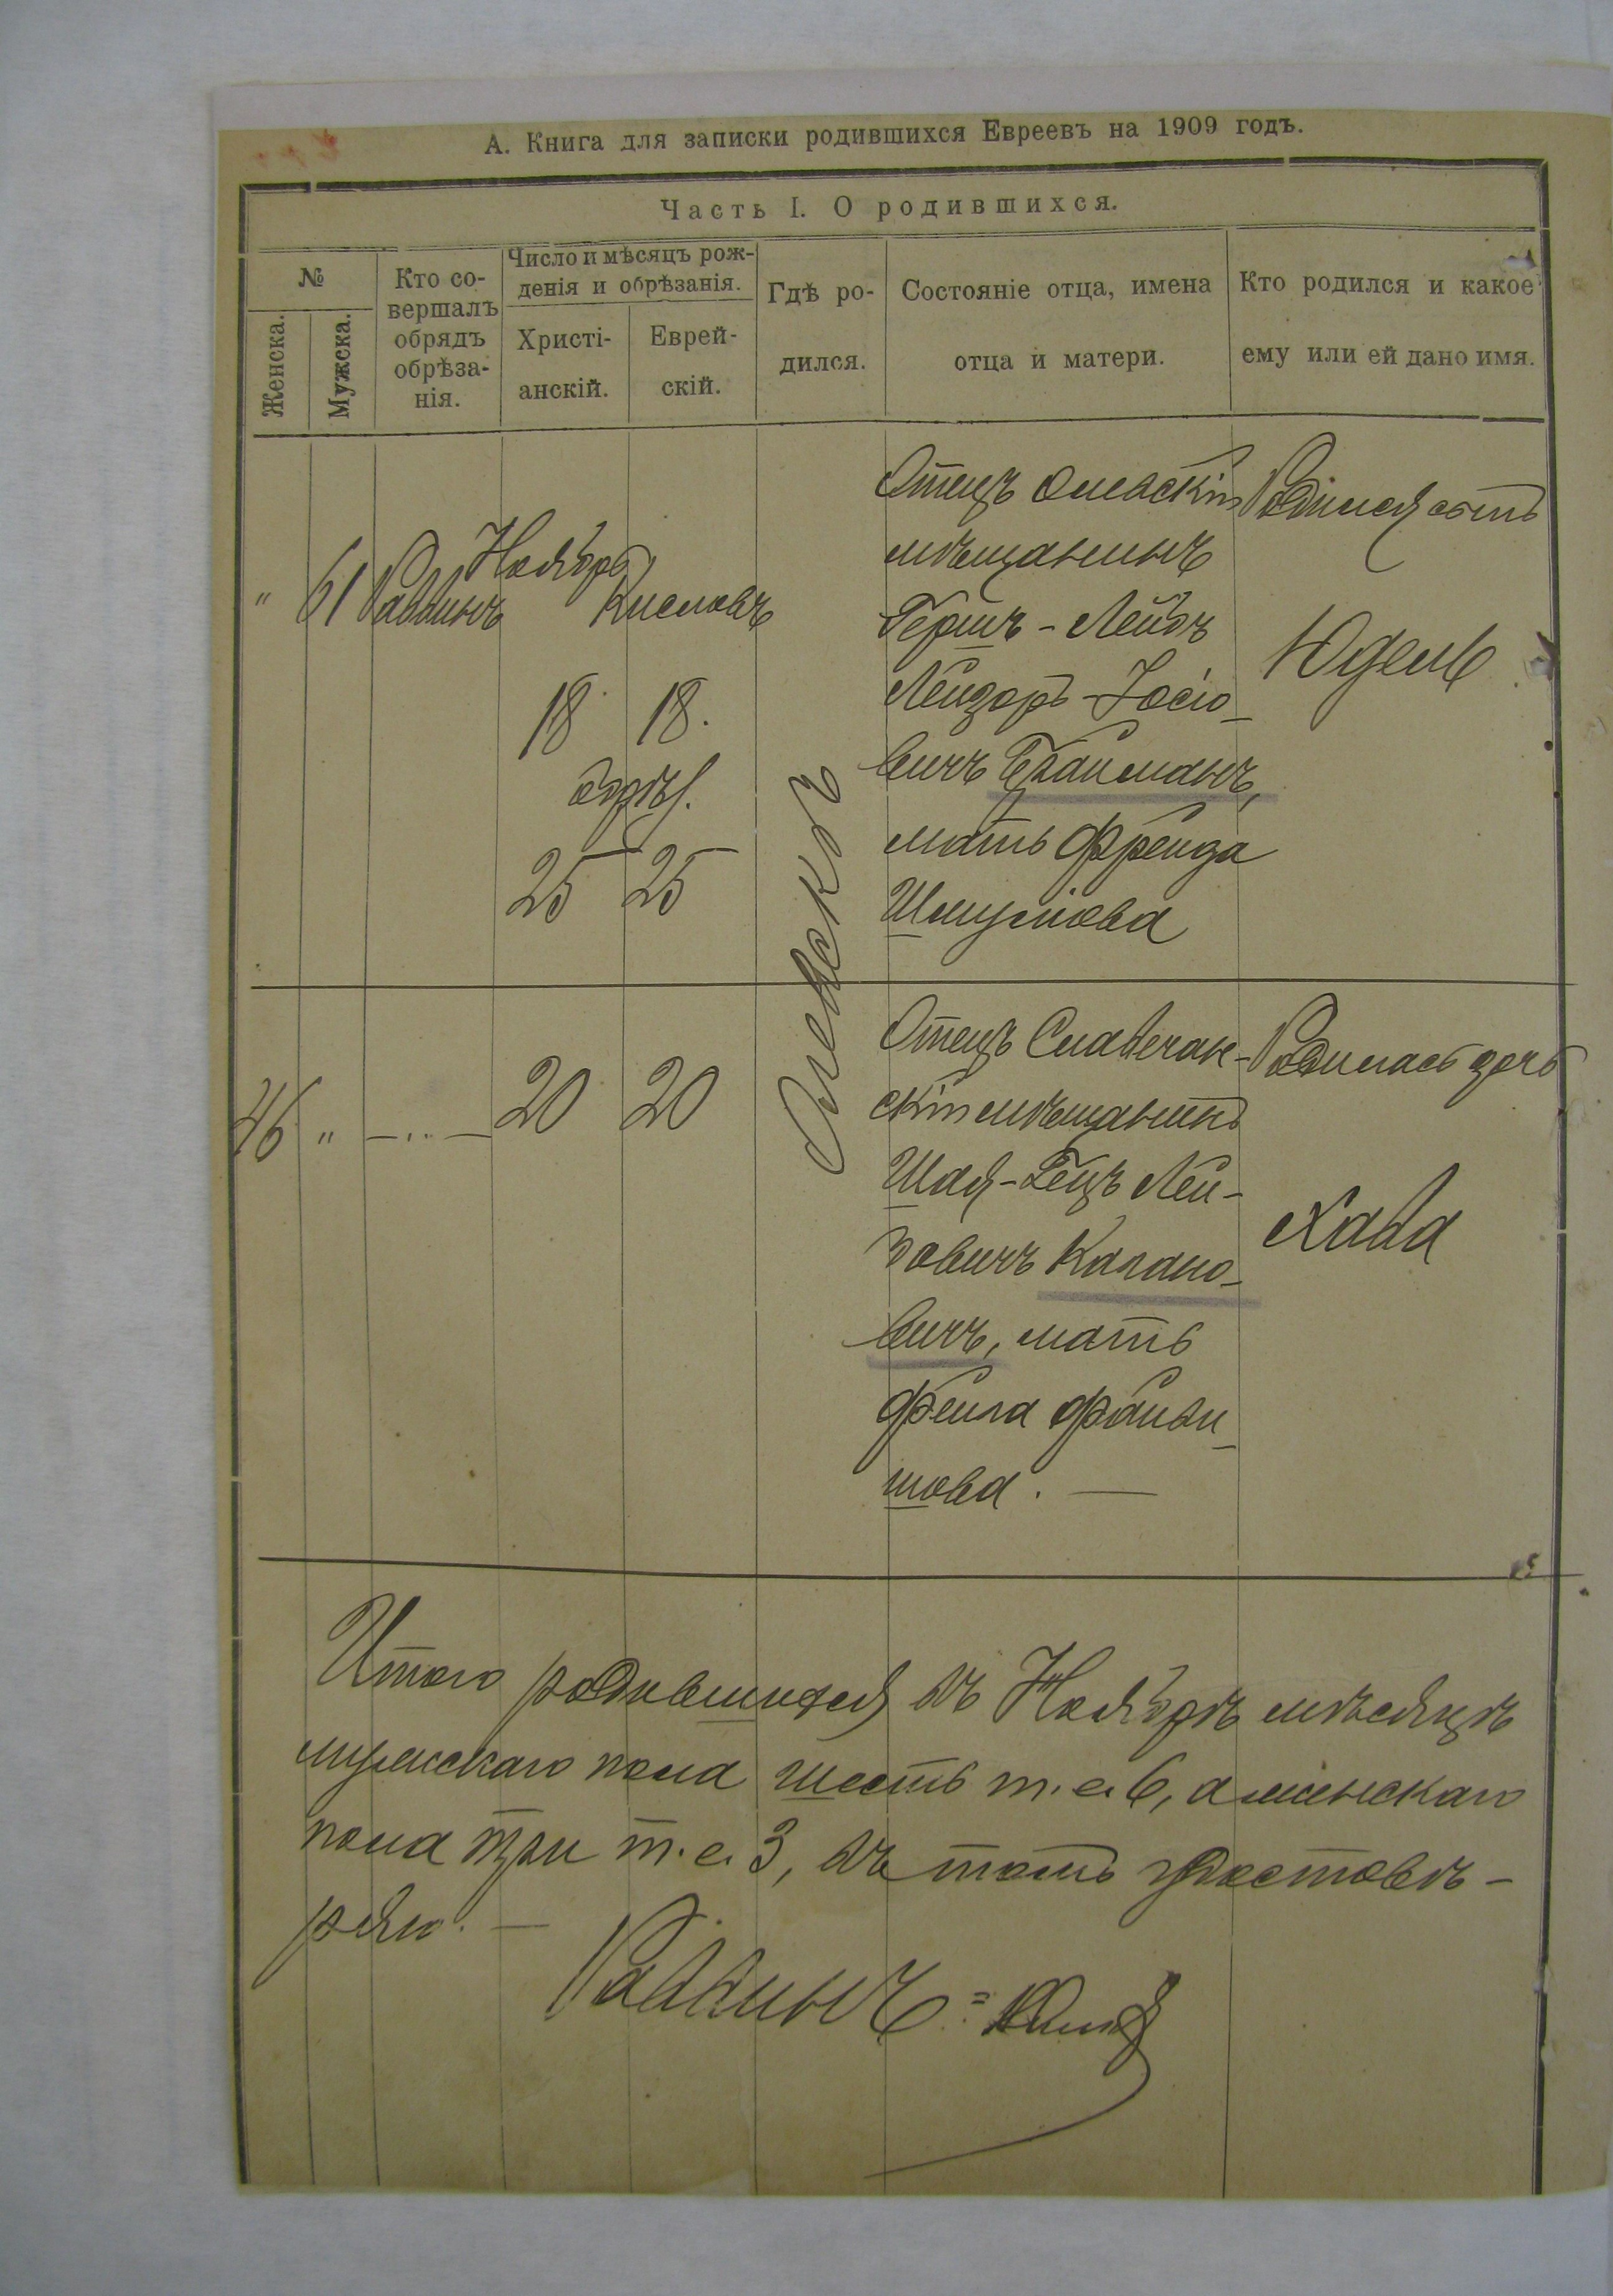 А. Книга для записки родившихся Евреевъ на 1909 годъ.
Часть I. О родившихся.
№
Женска.
Мужска.
Кто со-
вершалъ
обрядъ
обрѣза-
нія.
Число и мѣсяцъ рож-
денія и обрѣзанія.
Христі-
анскій.
Еврей-
скій.
Гдѣ ро-
дился.
Состояніе отца, имена
отца и матери.
Кто родился и какое
ему или ей дано имя.
" 61 Раввинъ
Ноябрь
Кислевъ
18 18.
25 25
Олевскъ
Отецъ Олевскій
мѣщанинъ
Гершъ-Лейбъ
Лейзоръ-Іосіо-
вичъ
мать Фрейда
Шмулиова
Родился сынъ
Юдель
46 " —··—
20 20
Отецъ Славечан-
скій мѣщанинъ
Шая-Гецъ Лей-
зовичъ Калано-
вичъ, мать
Фейга Файви-
шова. —
Родилась дочь
Хава
Итого родившихся въ Ноябрѣ мѣсяцѣ
мужскаго пола шесть т. е. 6, а женскаго
пола три т. е. 3, въ томъ удостовѣ-
ряю. —
Раввинъ=